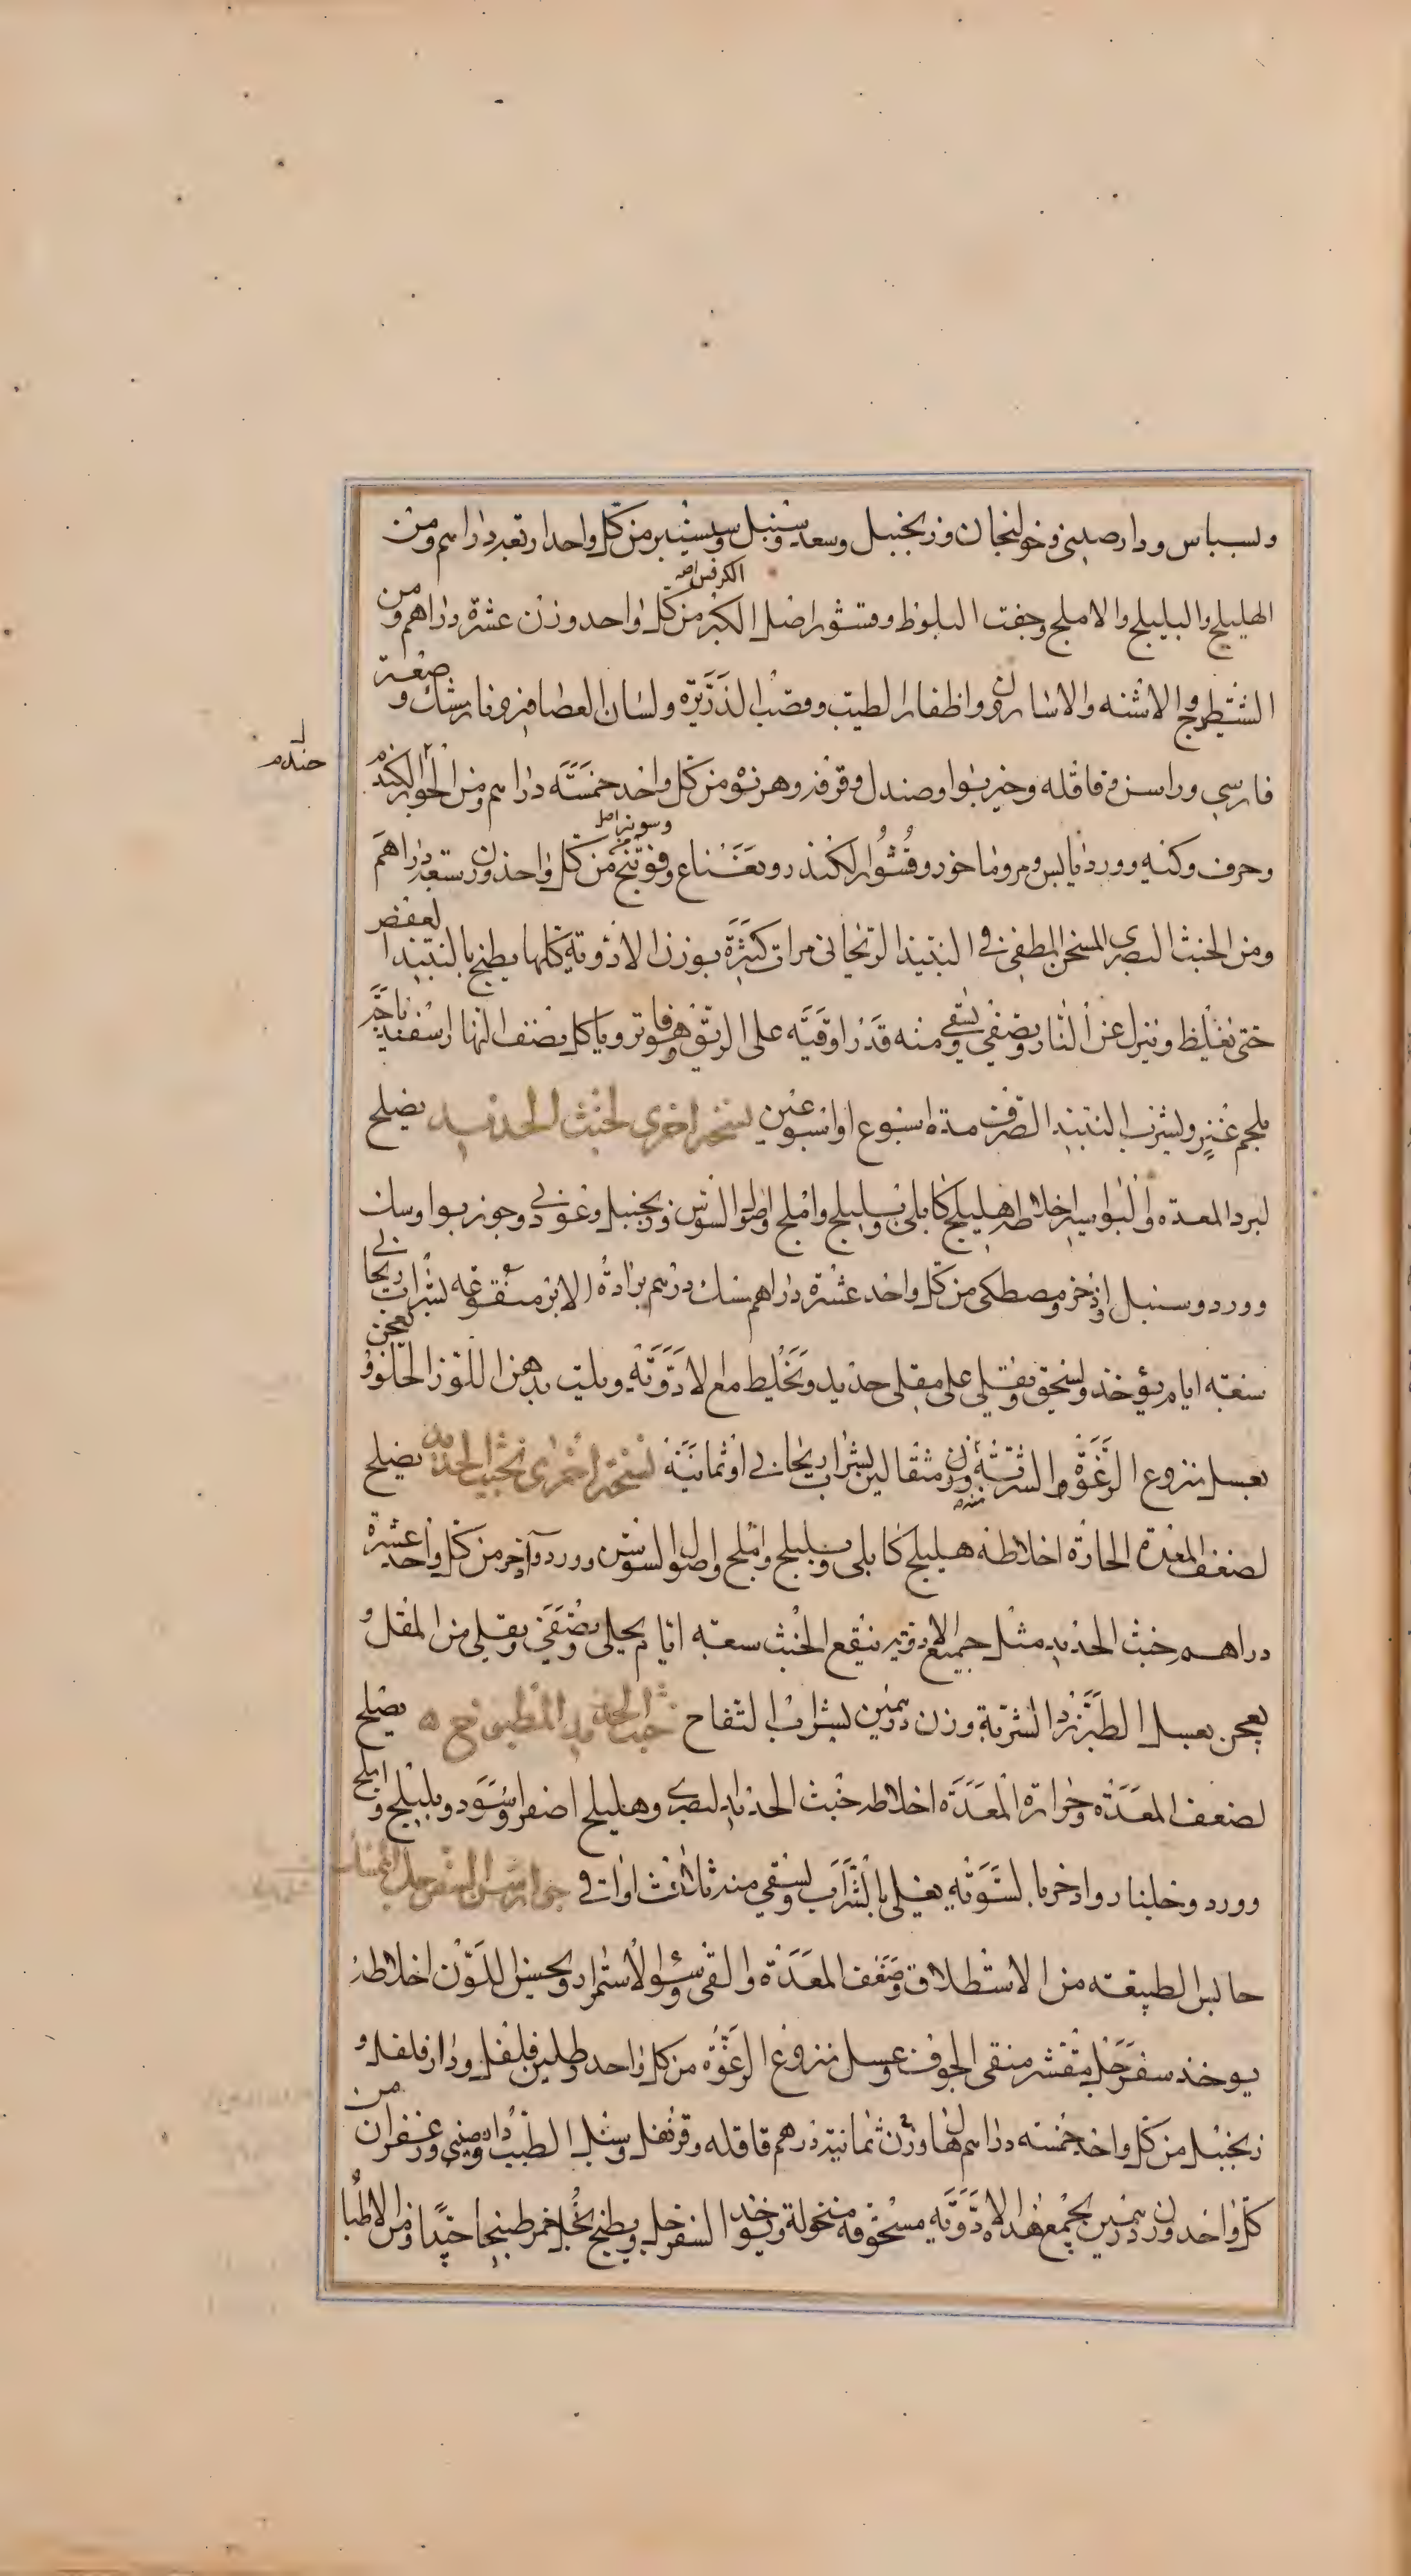 وبسباس ودارصيني وخولنجان وزنجبيل وسعد وسنبل وسيسنبر من كل واحد اربعة دراهم ومن
الكرفس اصل
الهليلج والبليلج والاملج وجفت البلوط وقشور اصل الكبر من كل واحد وزن عشرة دراهم ومن
الشيطرج والاشنه والاسارون واظفار الطيب وقصب الذريرة ولسان العصافير وفارسشك وصعتر
فارسي وراسن وقاقله وخيربوا وصندل وقرفه وهرنوه من كل واحد خمسة دراهم ومن الجوز الكندم
وحرف وكنه وورد يابس ومروماخور وقشور الكندر ونعناع وفوتنج من كل واحد وزن سبعة دراهم
ومن الخبث البصري المسخن المطفي في النبيذ الريحاني مرات كثيرة بوزن الادوية كلها يطبخ بالنبيذ العفص
حتى يغليظ وينزل عن النار ويصفي ويسقي منه قدر اوقية على الريق وهو فاتر وياكل نصف النهار اسفيدباجة
بلحم عنز ويشرب النبيذ الصرف مدة اسبوع او اسبوعين نسخه اخرى لخبث الحديد يصلح
لبرد المعدة والبواسير اخلاطه هليلج كابلي وبليلج واملج واصل السوس وزنجبيل وجوز بوا وسك
وورد وسنبل واذخر ومصطكى من كل واحد عشرة دراهم مسك درهم برادة الابر منقوعه بشراب ريحاني
سبعة ايام يؤخذ ويسحق ويقلى على مقلى حديد ويخلط مع الادوية ويلت بدهن اللوز الحلو ويعجن
بعسل منزوع الرغوة والشربة منه وزن مثقالين بشراب ريحاني او ثمانية نسخه اخرى لخبث الحديد يصلح
لضعف المعدة الحارة اخلاطه هليلج كابلي وبليلج واملج واصل السوس وورد واذخر من كل واحد عشرة
دراهم خبث الحديد مثل جميع الادوية ينقع الخبث سبعة ايام بخل ويصفى ويقلى من المقل و
يعجن بعسل الطبرزد الشربة وزن درهمين بشراب التفاح خبث الحديد المطبوخ يصلح
لضعف المعدة وحرارة المعدة اخلاطه خبث الحديد البصري وهليلج اصفر واسود وبليلج واملج
وورد وجلنار واذخر بالسوية يغلى بالشراب ويسقي منه ثلاث اواق جوارشن السفرجل الممسك
حابس الطبيعة من الاستطلاق وضعف المعدة والقي وسوء الاستمراء ويحسن اللون اخلاطه
يوخذ سفرجل مقشر منقى الجوف وعسل منزوع الرغوة من كل واحد رطلين فلفل ودارفلفل و
زنجبيل من كل واحد خمسة دراهم هال وزن ثمانية درهم قاقله وقرنفل وسنبل الطيب ودارصيني وزعفران من
كل واحد وزن درهمين يجمع هذه الادوية مسحوقه منخولة ويوخذ السفرجل ويطبخ بخل خمر طبخا جيدا ومن الاطبا